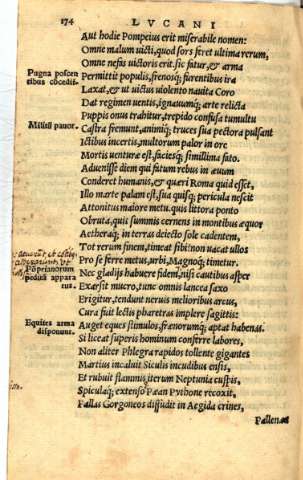 174 LVCANI
Aut hodie Pompeius erit miserabile nomen:
Omne malum uicti, quod sors feret ultima rerum,
Omne nefas uictoris erit. sic fatur, & arma
Pugna poscen Permittit populis, frenosq; furentibus ira
tibus cōcedit. Laxat, & ut uictus uiolento nauita Coro
Dat regimen uentis, ignauumq; arte relicta
Puppis onus trahitur, trepido confusa tumultu
Militū pauor. Castra fremunt, animiq; truces sua pectora pulsant
Ictibus incertis, multorum palor in ore
Mortis uenturæ est, faciesq; simillima fato.
Aduenisse diem qui fatum rebus in æuum
Conderet humanis, & quæri Roma quid esset,
Illo marte palam est, sua quisq; pericula nescit
Attonitus maiore metu. quis littora ponto
Obruta, quis summis cernens in montibus æquor
Aetheraq; in terras deiecto sole cadentem,
Tot rerum finem, timeat sibi? non uacat ullos
Pōpeianorum Pro se ferre metus, urbi, Magnoq; timetur.
peditū appara Nec gladijs habuere fidem, nisi cautibus asper
tus. Exarsit mucro, tunc omnis lancea saxo
Erigitur, tendunt neruis melioribus arcus,
Cura fuit lectis pharetras implere sagittis:
Equites arma Auget eques stimulos, frænorumq; aptat habenas.
disponunt. Si liceat superis hominum conferre labores,
Non aliter Phlegra rapidos tollente gigantes
Martius incaluit Siculis incudibus ensis,
Et rubuit flammis, iterum Neptunia cuspis,
Spiculaq; extenso Pæan Pythone recoxit,
Pallas Gorgoneos diffudit in Aegida crines,
Pallenæa